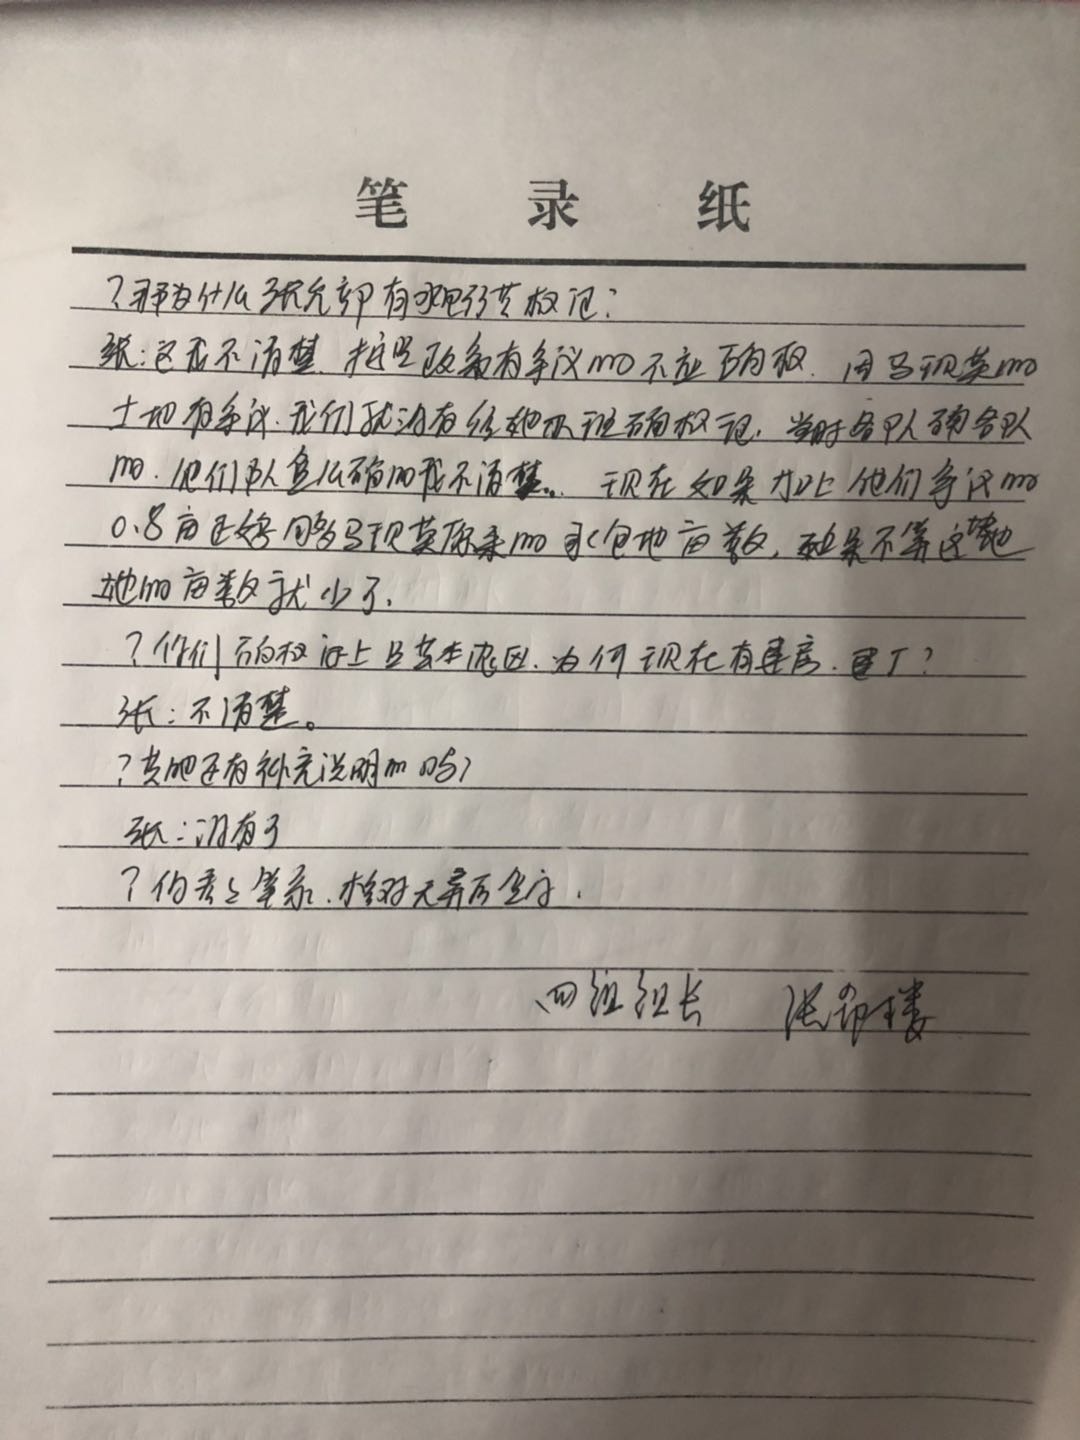 笔录纸
?那为什么张允却有确权证?
张:这我不清楚.按照政策有争议的不应确权.因马现英的
土地有争议.我们就没有给她队班确权证.当时各队确各队
的.他们队怎么确的我不清楚.现在如果加上他们争议的
0.8亩正好同马现英原来的承包地亩数,如果不算这块地
地的亩数就少了.
?你们确权证上是基本农田.为何现在有建房.建丁?
张:不清楚。
?其他还有补充说明的吗?
张:没有了
?你看上笔录.核对无异后签字.
四组组长